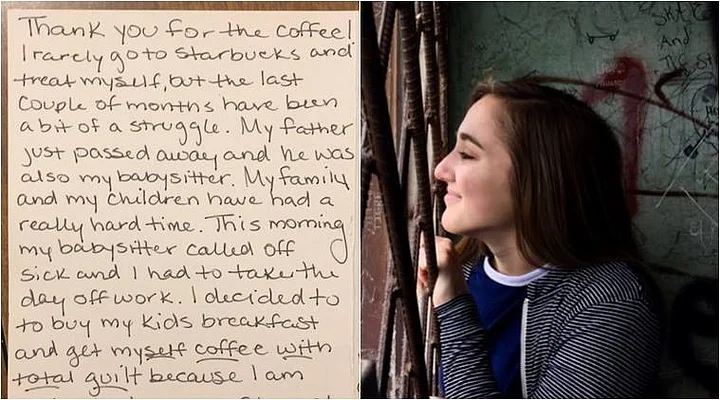 Thank you for the coffee!
I rarely go to Starbucks and
treat myself, but the last
couple of months have been
a bit of a struggle. My father
just passed away and he was
also my babysitter. My family
and my children have had a
really hard time. This morning
my babysitter called off
sick and I had to take the
day off work. I decided to
to buy my kids breakfast
and get myself coffee with
total guilt because I am